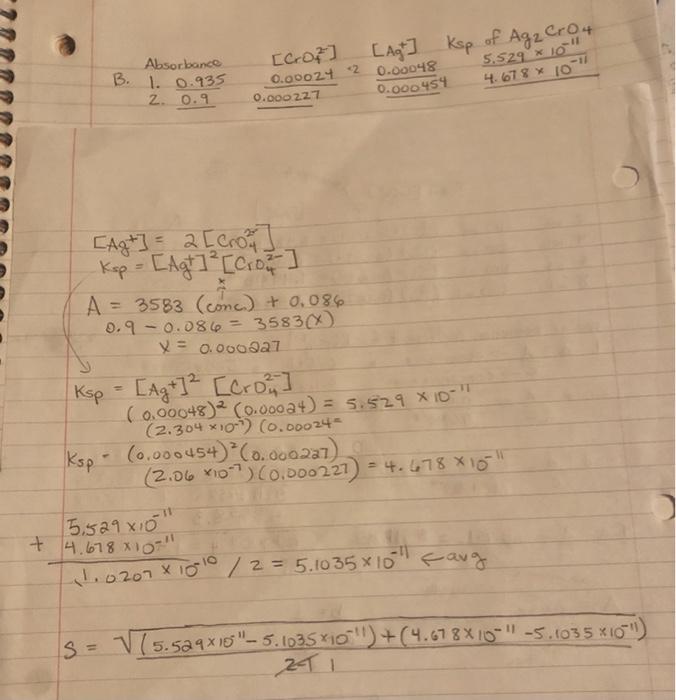 Absorbance [CrO₄²⁻] [Ag⁺] Ksp of Ag₂CrO₄
B. 1. 0.935 0.00024 ·2 0.00048 5.529 × 10⁻¹¹
2. 0.9 0.000227 0.000454 4.678 × 10⁻¹¹
[Ag⁺] = 2[CrO₄²⁻]
Ksp = [Ag⁺]²[CrO₄²⁻]
x
A = 3583 (conc.) + 0.086
0.9 - 0.086 = 3583(x)
x = 0.000227
Ksp = [Ag⁺]² [CrO₄²⁻]
(0.00048)² (0.00024) = 5.529 × 10⁻¹¹
(2.304 × 10⁻⁷) (0.00024=
Ksp = (0.000454)² (0.000227)
(2.06 × 10⁻⁷) (0.000227) = 4.678 × 10⁻¹¹
5.529 × 10⁻¹¹
+ 4.678 × 10⁻¹¹
1.0207 × 10⁻¹⁰ / 2 = 5.1035 × 10⁻¹¹ ← avg
S = √(5.529 × 10⁻¹¹ - 5.1035 × 10⁻¹¹) + (4.678 × 10⁻¹¹ - 5.1035 × 10⁻¹¹)
2-1 1